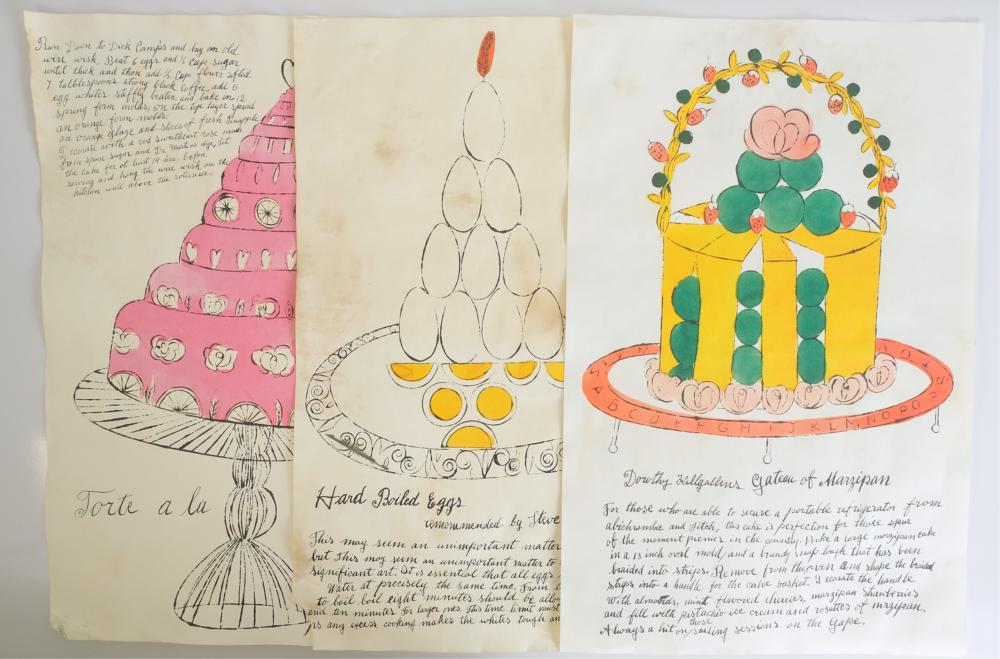 Run Down to Dick Camps and buy an old
wire wisk. Beat 6 eggs and ½ Cups sugar
until thick and then add ½ Cups flower sifted
7 tabblespoons strong black coffee, add 5
egg whites stiffly beaten and bake in 12
spring form molds, on the tope layer spread
an orange form molds.
on orange glaze and slices of fresh Pineapple
decorate with a red sweetheart rose made
from spun sugar and Dr. Martins dye, let
the cake for at least 14 hrs. before
serving and hang the wire wisk on the
kitchen wall above the rotisserie.
Torte a la
Hard Boiled Eggs
remommended by Steve
This may seem an unimportant matter
but This may seem an unimportant matter to
significant art. It is essential that all eggs
Water at precisely the same time. From
to boil boil eight minutes should be
and ten minutes for larger ones. This time limit must
as any excess cooking makes the whites tough an
A B C D E F G H I J K L M N O P Q R S T U
Dorothy Killgallens Gateau of Marzipan
For those who are able to secure a portable refrigerator from
abichrombie and Fitch, this cake is perfection for those spur
of the moment picnics in the country. Bake a large marzipan cake
in a 13 inch oval mold, and a brandy snap dough that has been
braided into strips. Remove from the oven and shape the braided
strips into a handle for the cake basket. Decorate the handle
with almonttas, mint flavored cherries, marzipan strawberries
and fill with pistachio ice-cream and rosettes of mrzipan.
Always a hit on those smiling sessions on the Gape.